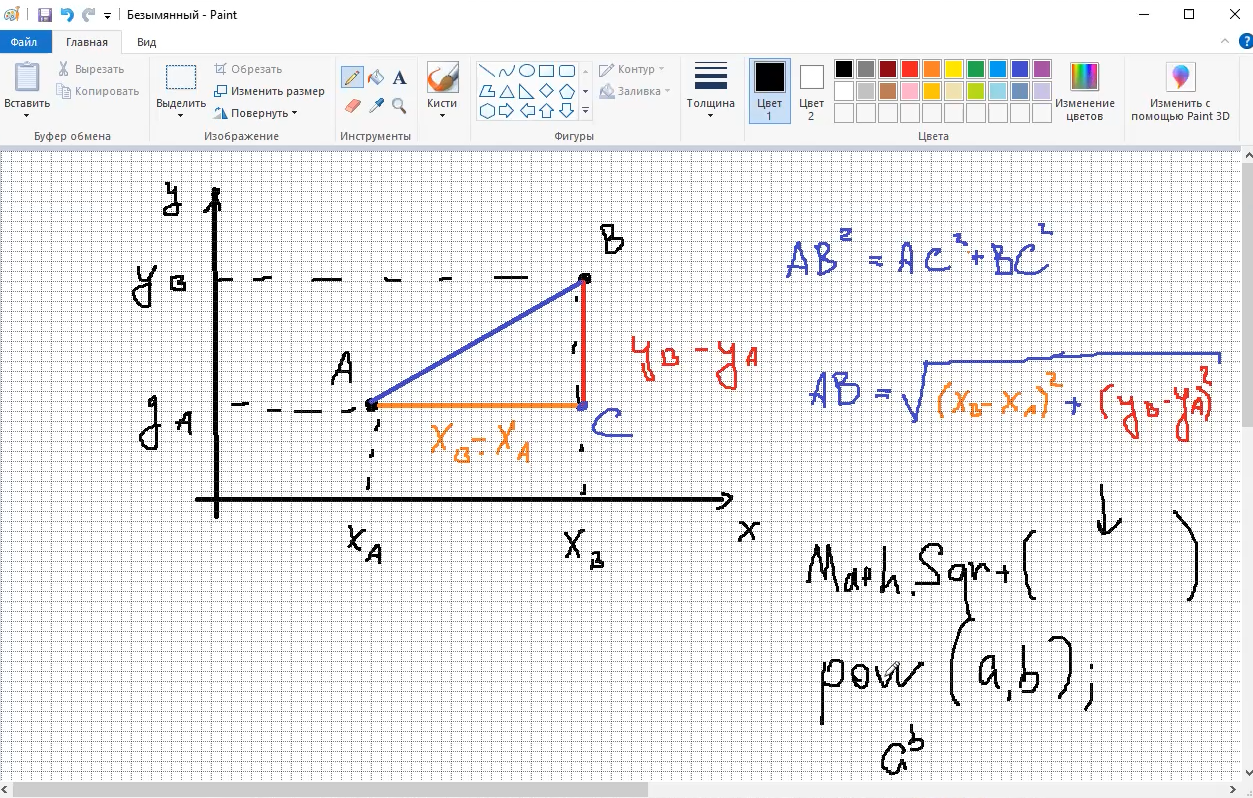 Безымянный - Paint
Файл Главная Вид
Вставить
Вырезать
Копировать
Буфер обмена
Выделить
Обрезать
Изменить размер
Повернуть
Изображение
A
Инструменты
Кисти
Контур
Заливка
Фигуры
Толщина
Цвет 1
Цвет 2
Изменение цветов
Цвета
Изменить с помощью Paint 3D
y
B
y_B
A
y_B - y_A
y_A
C
x_B - x_A
x_A
x_B
x
AB² = AC² + BC²
AB = √(x_B - x_A)² + (y_B - y_A)²
Math.Sqrt( )
pow(a,b);
a^b